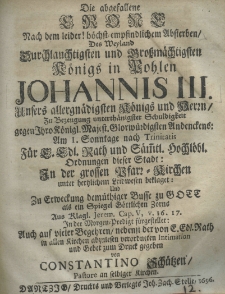 Die abgefallene
CRONE
Nach dem leider! höchst-empfindlichem Absterben/
Des Weyland
Durchlauchtigsten und Großmächtigsten
Königs in Pohlen
JOHANNIS III.
Unsers allergnädigsten Königs und Herrn/
Zu Bezeugung unterthänigster Schuldigkeit
gegen Ihro Königl. Majest. Glorwürdigsten Andenckens:
Am I. Sonntage nach Trinitatis
Für E. Edl. Rath und Sämtl. Hochlöbl.
Ordnungen dieser Stadt:
In der grossen Pfarr-Kirchen
unter hertzlichem beklaget:
Und
Zu Erweckung demüthiger Busse zu GOTT
als ein Spiegel Göttlichen Zorns
Aus Klagl. Jerem. Cap. V, v. 16. 17.
In der Morgen-Predigt fürgestellet;
Auch auf vieler Begehren/ nebenst der von E. Edl. Rath
in allen Kirchen abzulesen verordneten Intimation
und Gebet zum Druck gegeben
von
CONSTANTINO Schützen/
Pastore an selbiger Kirchen.
DANTZIG/ Druckts und Verlegts Joh. Zach. Stolle/ 1696.
12.